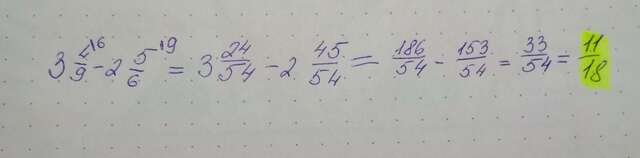 3 4/9^{\6} - 2 5/6^{\9} = 3 24/54 - 2 45/54 = 186/54 - 153/54 = 33/54 = 11/18